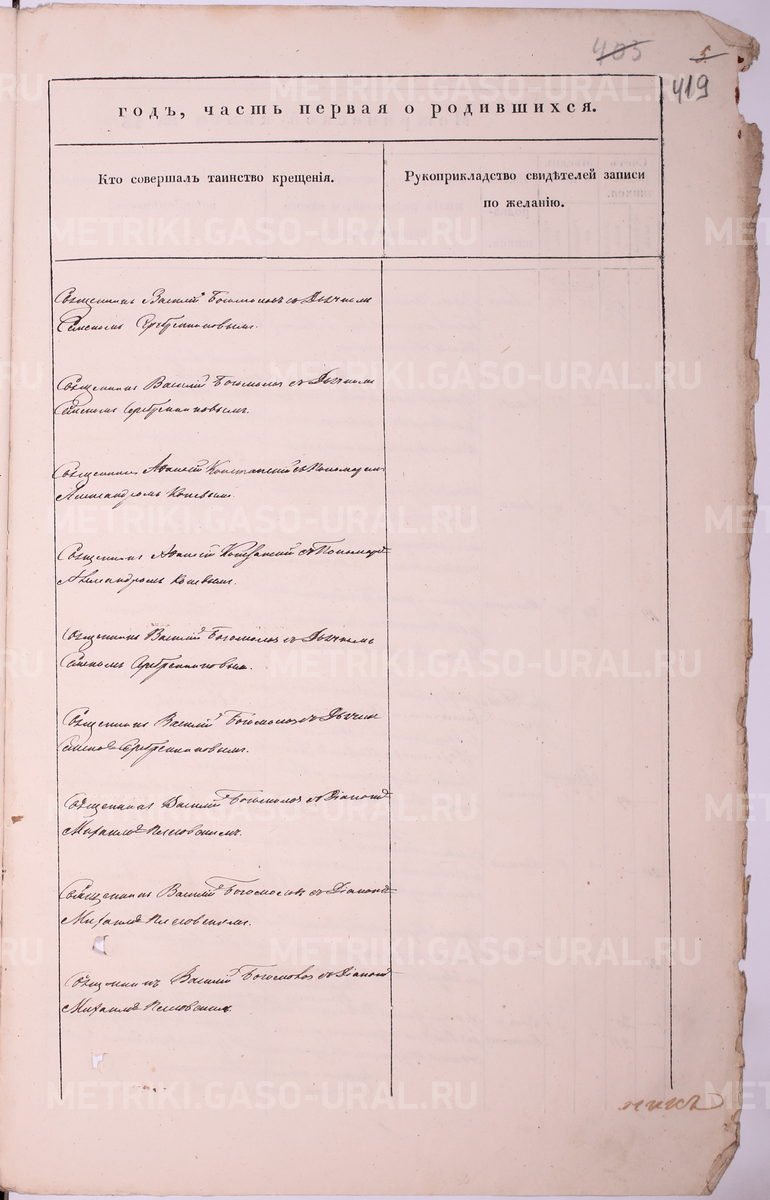 405
5.
419
годъ, часть первая о родившихся.
Кто совершалъ таинство крещенія.
Рукоприкладство свидѣтелей записи
по желанію.
Священникъ Василій Богомоловъ съ Дьячкомъ
Семеномъ Серебренниковымъ.
Священникъ Василій Богомоловъ съ Дьячкомъ
Семеномъ Серебренниковымъ.
Священникъ съ Пономаремъ
Александромъ Коневымъ.
Священникъ съ Пономаремъ
Александромъ Коневымъ.
Священникъ Василій Богомоловъ съ Дьячкомъ
Семеномъ Серебренниковымъ.
Священникъ Василій Богомоловъ съ Дьячкомъ
Семеномъ Серебренниковымъ.
Священникъ Василій Богомоловъ съ Діакономъ
Михаиломъ
Священникъ Василій Богомоловъ съ Діакономъ
Михаиломъ
Священникъ Василій Богомоловъ съ Діакономъ
Михаиломъ
METRIKI.GASO-URAL.RU